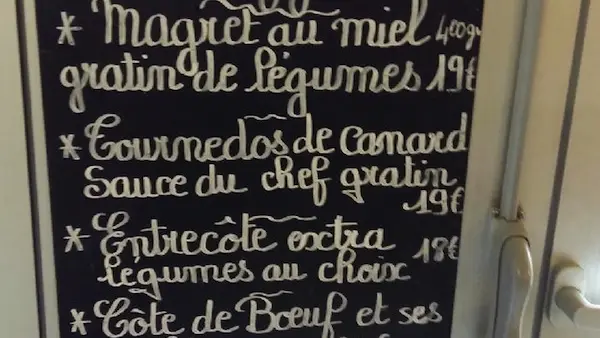 * Magret au miel 400gr
gratin de légumes 19€
* Tournedos de Canard
Sauce du chef gratin
19€
* Entrecôte exctra 18€
légumes au choix
* Côte de Bœuf et ses